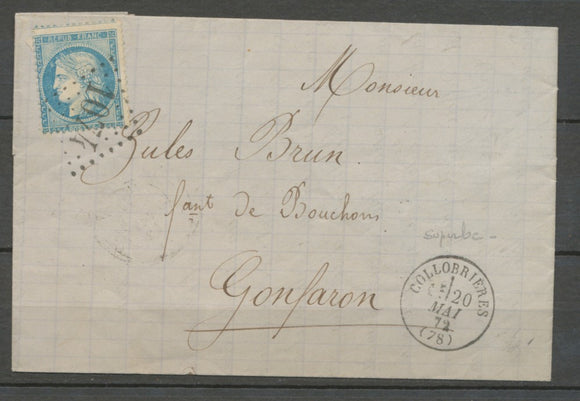 REPUB. FRANC.
Monsieur
Jules Brun
fant de Bouchons
Gonfaron
superbe
COLLOBRIÈRES
20
MAI
72
(78)